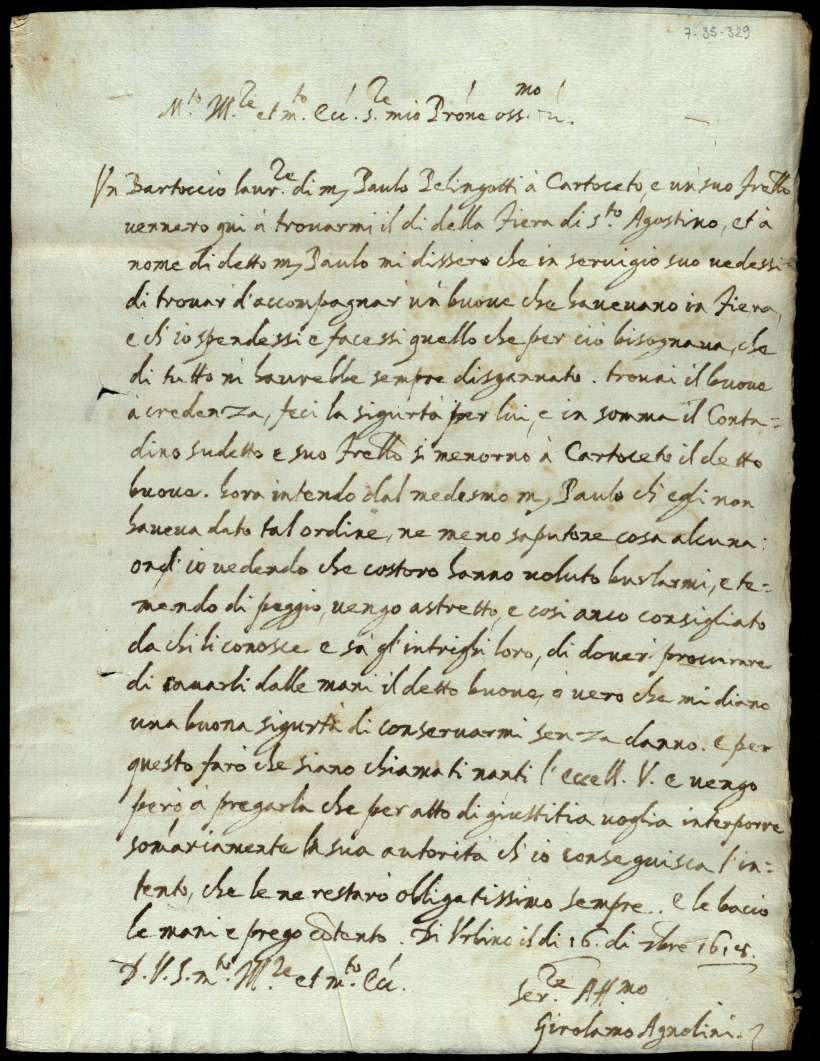 7-35-329
M.to M.re et m.to Ecc. s.re mio Prone oss.mo
Un Bartoccio laur.re di m, Paulo Pelingotti à Cartoceto, e un suo frello
uennero qui à trouarmi il di della Fiera di s.to Agostino, et à
nome di detto m, Paulo mi dissero che in seruigio suo uedessi
di trouar d'accompagnar un buoue che haueuano in Fiera,
e ch'io spendessi e facessi quello che per ciò bisognaua, che
di tutto mi haurebbe sempre disgannato. trouai il buoue
à credenza, feci la sigurtà per lui, e in somma il Conta=
dino sudetto e suo frello si menorno à Cartoceto il detto
buoue. hora intendo dal medesmo m, Paulo ch'egli non
haueua dato tal ordine, ne meno saputone cosa alcuna:
ond'io uedendo che costoro hanno uoluto burlarmi, e te=
mendo di peggio, uengo astretto, e cosi anco consigliato
da chi li conosce e sà gl'intrighi loro, di douer procurare
di cauarli dalle mani il detto buoue, ò uero che mi diano
una buona sigurtà di conseruarmi senza danno. e per
questo farò che siano chiamati nanti l'eccell. V. e uengo
però à pregarla che per atto di giustitia uoglia interporre
somariamente la sua autorità ch'io conseguisca l'in=
tento, che le ne restarò obligatissimo sempre. e le bacio
le mani e prego cotento. Di Urbino il di 16. di 7bre 1618.
D. V. S. m.to M.re et m.to Ecc.
Ser.re Aff.mo
Girolamo Agnolini.